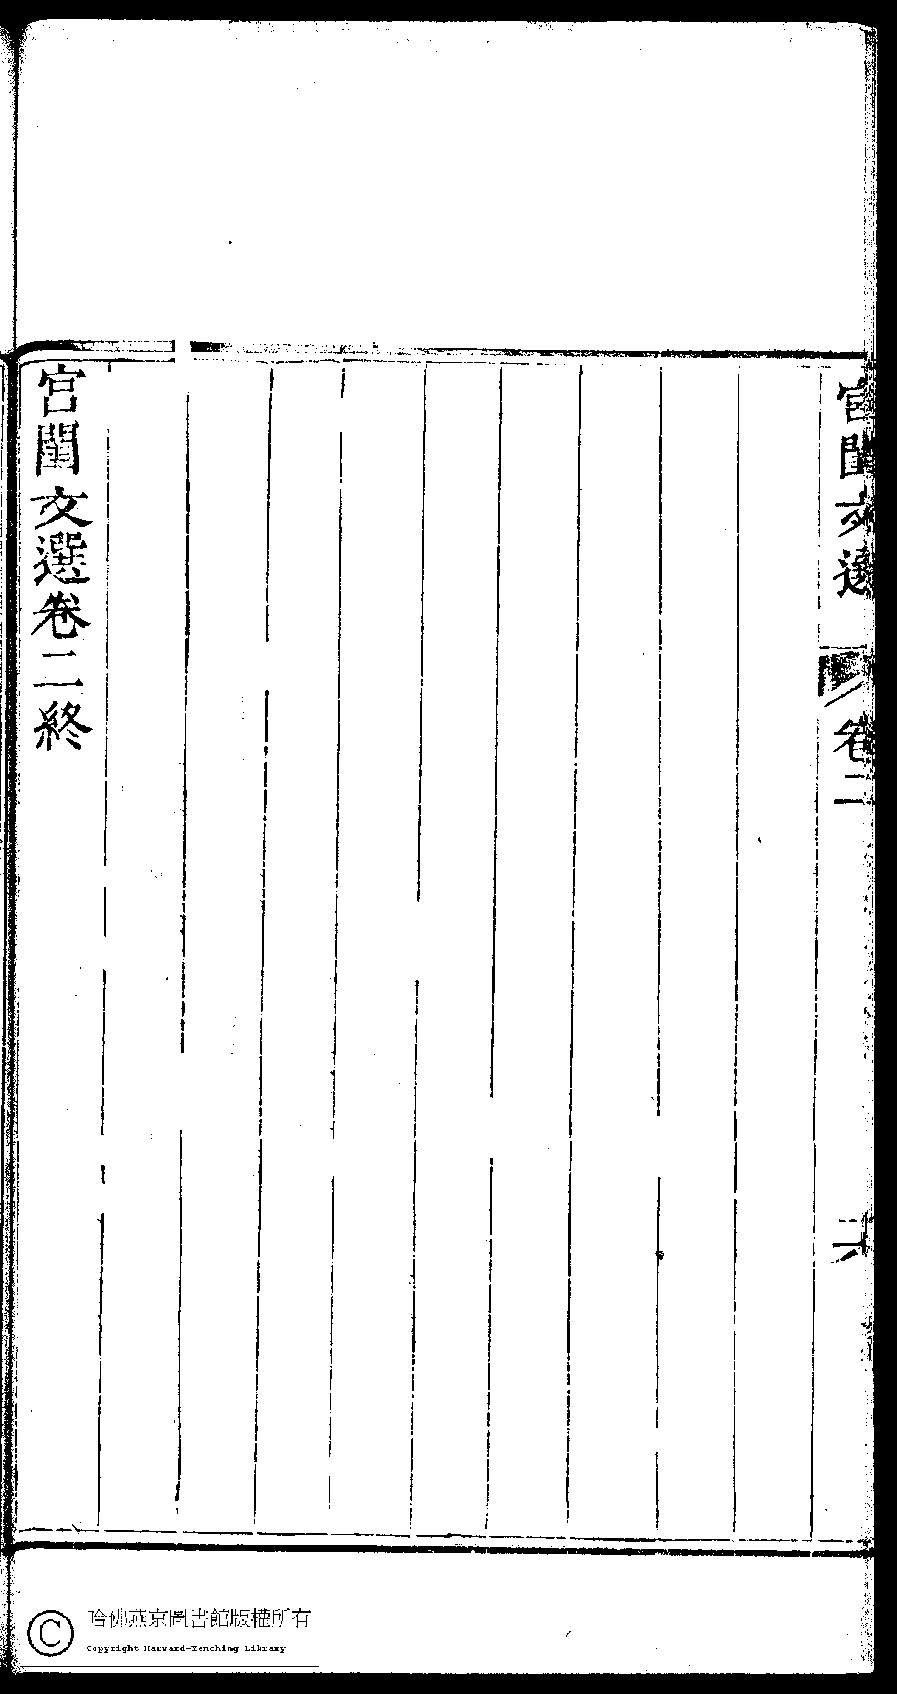 宮閨文選
卷二
宮閨文選卷二終
哈佛燕京圖書館版權所有
Copyright Harvard-Yenching Library